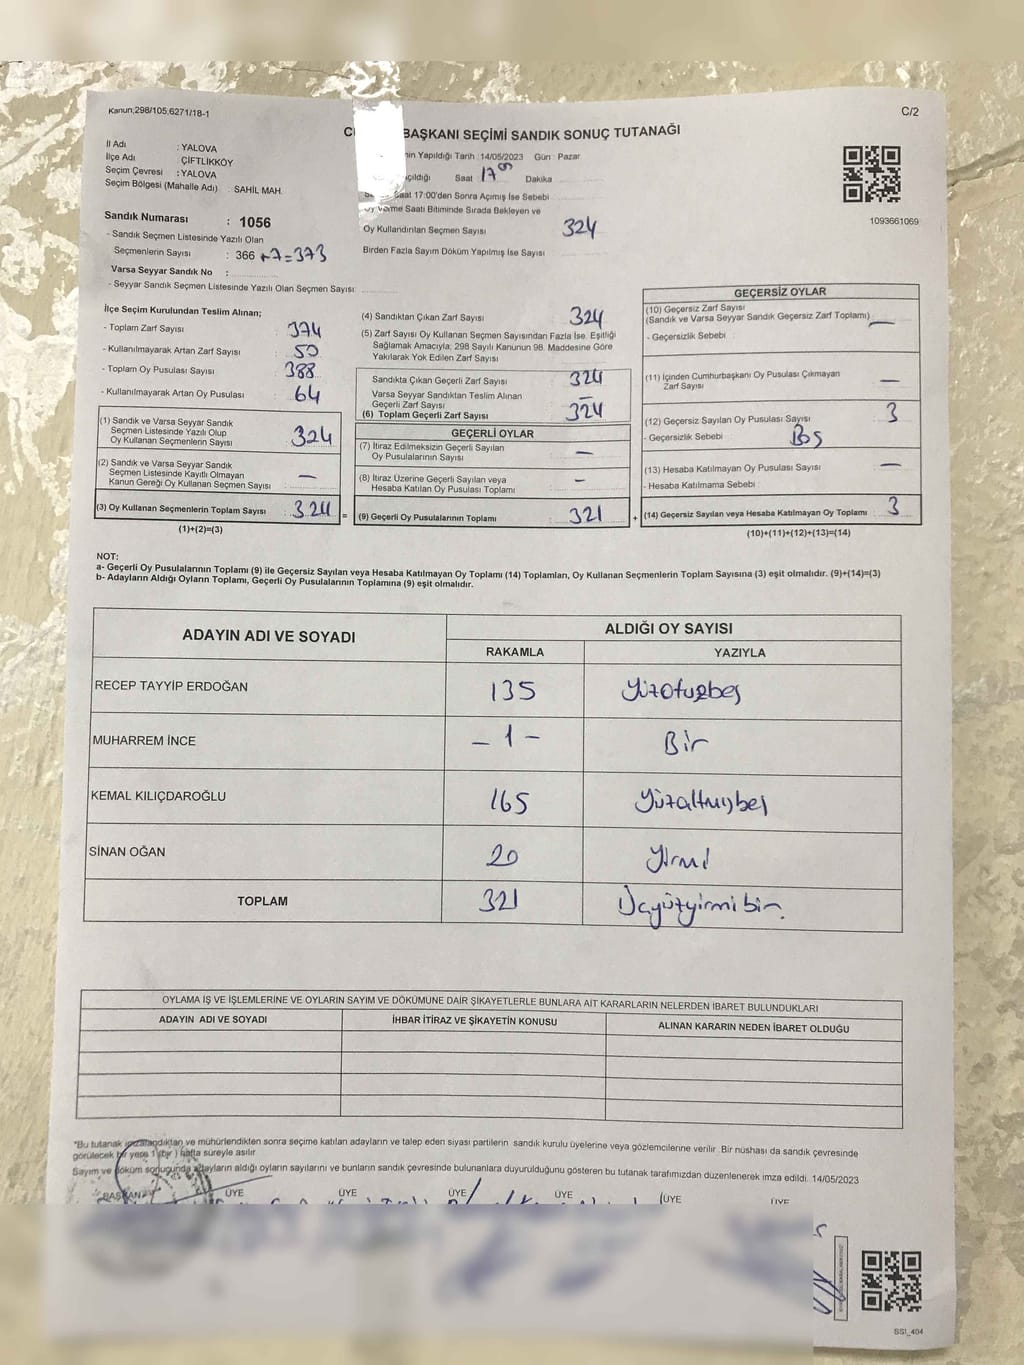 Kanun;298/105,6271/18-1
C/2
BAŞKANI SEÇİMİ SANDIK SONUÇ TUTANAĞI
İl Adı : YALOVA
İlçe Adı : ÇİFTLİKKÖY
Seçim Çevresi : YALOVA
Seçim Bölgesi (Mahalle Adı) : SAHİL MAH.
Yapıldığı Tarih : 14/05/2023 Gün : Pazar
Saat 17 Dakika
17:00'den Sonra Açımış İse Sebebi
Saati Bitiminde Sırada Bekleyen ve
Oy Kullandırılan Seçmen Sayısı 324
Birden Fazla Sayım Döküm Yapılmış İse Sayısı
1093661069
Sandık Numarası : 1056
- Sandık Seçmen Listesinde Yazılı Olan
Seçmenlerin Sayısı : 366 +7=373
Varsa Seyyar Sandık No :
- Seyyar Sandık Seçmen Listesinde Yazılı Olan Seçmen Sayısı :
İlçe Seçim Kurulundan Teslim Alınan;
- Toplam Zarf Sayısı : 374
- Kullanılmayarak Artan Zarf Sayısı : 50
- Toplam Oy Pusulası Sayısı : 388
- Kullanılmayarak Artan Oy Pusulası : 64
(1) Sandık ve Varsa Seyyar Sandık
Seçmen Listesinde Yazılı Olup
Oy Kullanan Seçmenlerin Sayısı : 324
(2) Sandık ve Varsa Seyyar Sandık
Seçmen Listesinde Kayıtlı Olmayan
Kanun Gereği Oy Kullanan Seçmen Sayısı : —
(3) Oy Kullanan Seçmenlerin Toplam Sayısı : 324 =
(1)+(2)=(3)
(4) Sandıktan Çıkan Zarf Sayısı 324
(5) Zarf Sayısı Oy Kullanan Seçmen Sayısından Fazla İse, Eşitliği
Sağlamak Amacıyla; 298 Sayılı Kanunun 98. Maddesine Göre
Yakılarak Yok Edilen Zarf Sayısı
Sandıkta Çıkan Geçerli Zarf Sayısı : 324
Varsa Seyyar Sandıktan Teslim Alınan
Geçerli Zarf Sayısı : —
(6) Toplam Geçerli Zarf Sayısı : 324
GEÇERLİ OYLAR
(7) İtiraz Edilmeksizin Geçerli Sayılan
Oy Pusulalarının Sayısı : —
(8) İtiraz Üzerine Geçerli Sayılan veya
Hesaba Katılan Oy Pusulası Toplamı : —
(9) Geçerli Oy Pusulalarının Toplamı : 321 +
GEÇERSİZ OYLAR
(10) Geçersiz Zarf Sayısı
(Sandık ve Varsa Seyyar Sandık Geçersiz Zarf Toplamı) : —
- Geçersizlik Sebebi :
(11) İçinden Cumhurbaşkanı Oy Pusulası Çıkmayan
Zarf Sayısı : —
(12) Geçersiz Sayılan Oy Pusulası Sayısı : 3
- Geçersizlik Sebebi : Boş
(13) Hesaba Katılmayan Oy Pusulası Sayısı : —
- Hesaba Katılmama Sebebi :
(14) Geçersiz Sayılan veya Hesaba Katılmayan Oy Toplamı : 3
(10)+(11)+(12)+(13)=(14)
NOT:
a- Geçerli Oy Pusulalarının Toplamı (9) ile Geçersiz Sayılan veya Hesaba Katılmayan Oy Toplamı (14) Toplamları, Oy Kullanan Seçmenlerin Toplam Sayısına (3) eşit olmalıdır. (9)+(14)=(3)
b- Adayların Aldığı Oyların Toplamı, Geçerli Oy Pusulalarının Toplamına (9) eşit olmalıdır.
ADAYIN ADI VE SOYADI ALDIĞI OY SAYISI
RAKAMLA YAZIYLA
RECEP TAYYİP ERDOĞAN 135 Yüzotuzbeş
MUHARREM İNCE – 1 – Bir
KEMAL KILIÇDAROĞLU 165 Yüzaltmışbeş
SİNAN OĞAN 20 Yirmi
TOPLAM 321 Üçyüzyirmibir.
OYLAMA İŞ VE İŞLEMLERİNE VE OYLARIN SAYIM VE DÖKÜMÜNE DAİR ŞİKAYETLERLE BUNLARA AİT KARARLARIN NELERDEN İBARET BULUNDUKLARI
ADAYIN ADI VE SOYADI İHBAR İTİRAZ VE ŞİKAYETİN KONUSU ALINAN KARARIN NEDEN İBARET OLDUĞU
*Bu tutanak imzalandıktan ve mühürlendikten sonra seçime katılan adayların ve talep eden siyasi partilerin sandık kurulu üyelerine veya gözlemcilerine verilir. Bir nüshası da sandık çevresinde
görülecek bir yere 1 (bir ) hafta süreyle asılır.
Sayım ve döküm sonucunda adayların aldığı oyların sayılarını ve bunların sandık çevresinde bulunanlara duyurulduğunu gösteren bu tutanak tarafımızdan düzenlenerek imza edildi. 14/05/2023
BAŞKAN ÜYE ÜYE ÜYE ÜYE ÜYE ÜYE
SSI_404